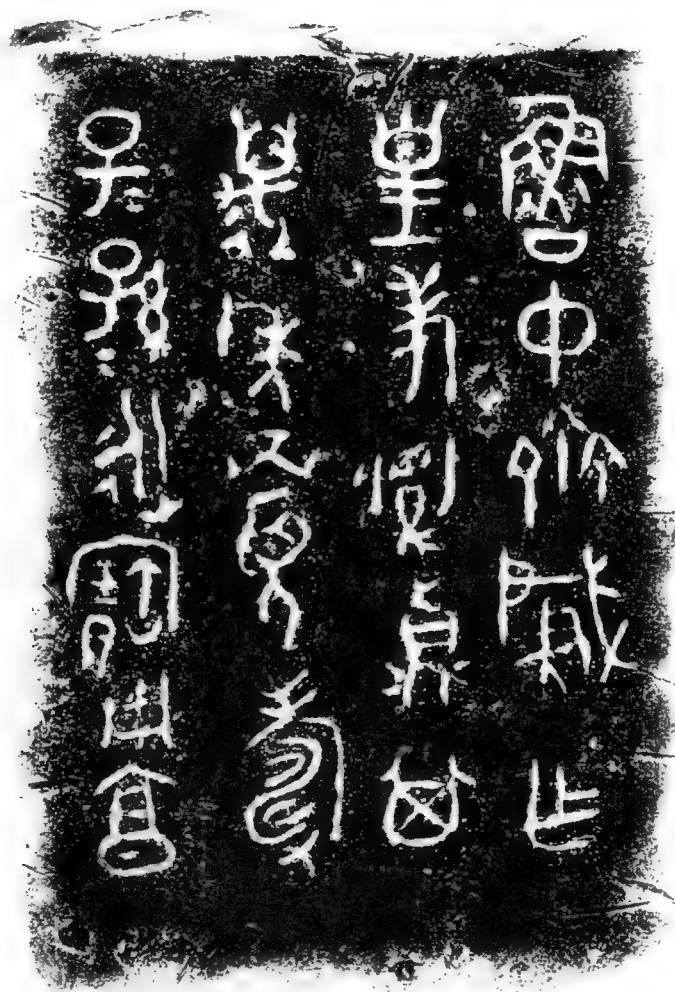 魯中齊肇乍
皇考䵼貞其
萬年眉壽
子=孫=永寶用享